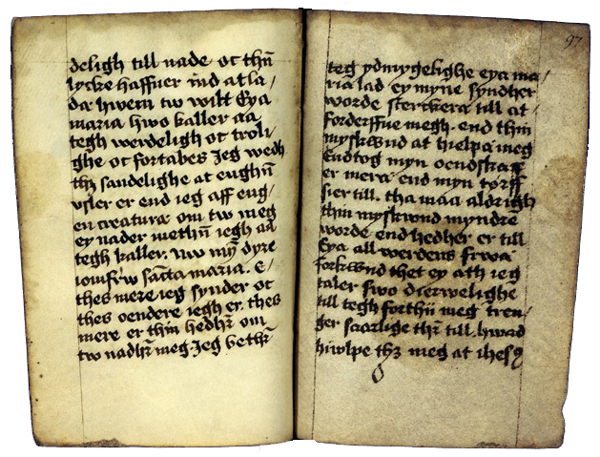 deligh till nade oc thū
lycke haffuer ind at la/
da hwem tw wilt Eya
maria hwo kaller aa
tegh werdeligh oc troli/
ghe oc fortabes Jeg wedh
thꝫ sandelighe at enghū
vsler er end ieg aff eng/
en creaturæ om tw meg
ey nader methū iegh aa
tegh kaller. Nw my̅ dyre
iomfrw sācta maria. E/
thes mere ieg synder oc
thes oendere iegh er. thes
mere er thin hedhr̄ om
tw nadhr̄ meg Jeg bethr̄
97
teg ydmygelighe eya ma/
ria lad ey myne syndher
worde sterckera till at /
forderffue megh. end thin
myskwnd at hielpa meg
Endtog myn oendskaff
er mera end myn tørff
sier till. tha maa aldrigh
thin myskwnd myndre
worde end hedher er till
Eya all werdens frwa
forkwnd thet ey ath ieg
taler swo dierwelighe
till tegh forthū meg tren/
ger saarlige thr̄ till. hwad
hiwlpe thꝫ meg at ihesꝯ